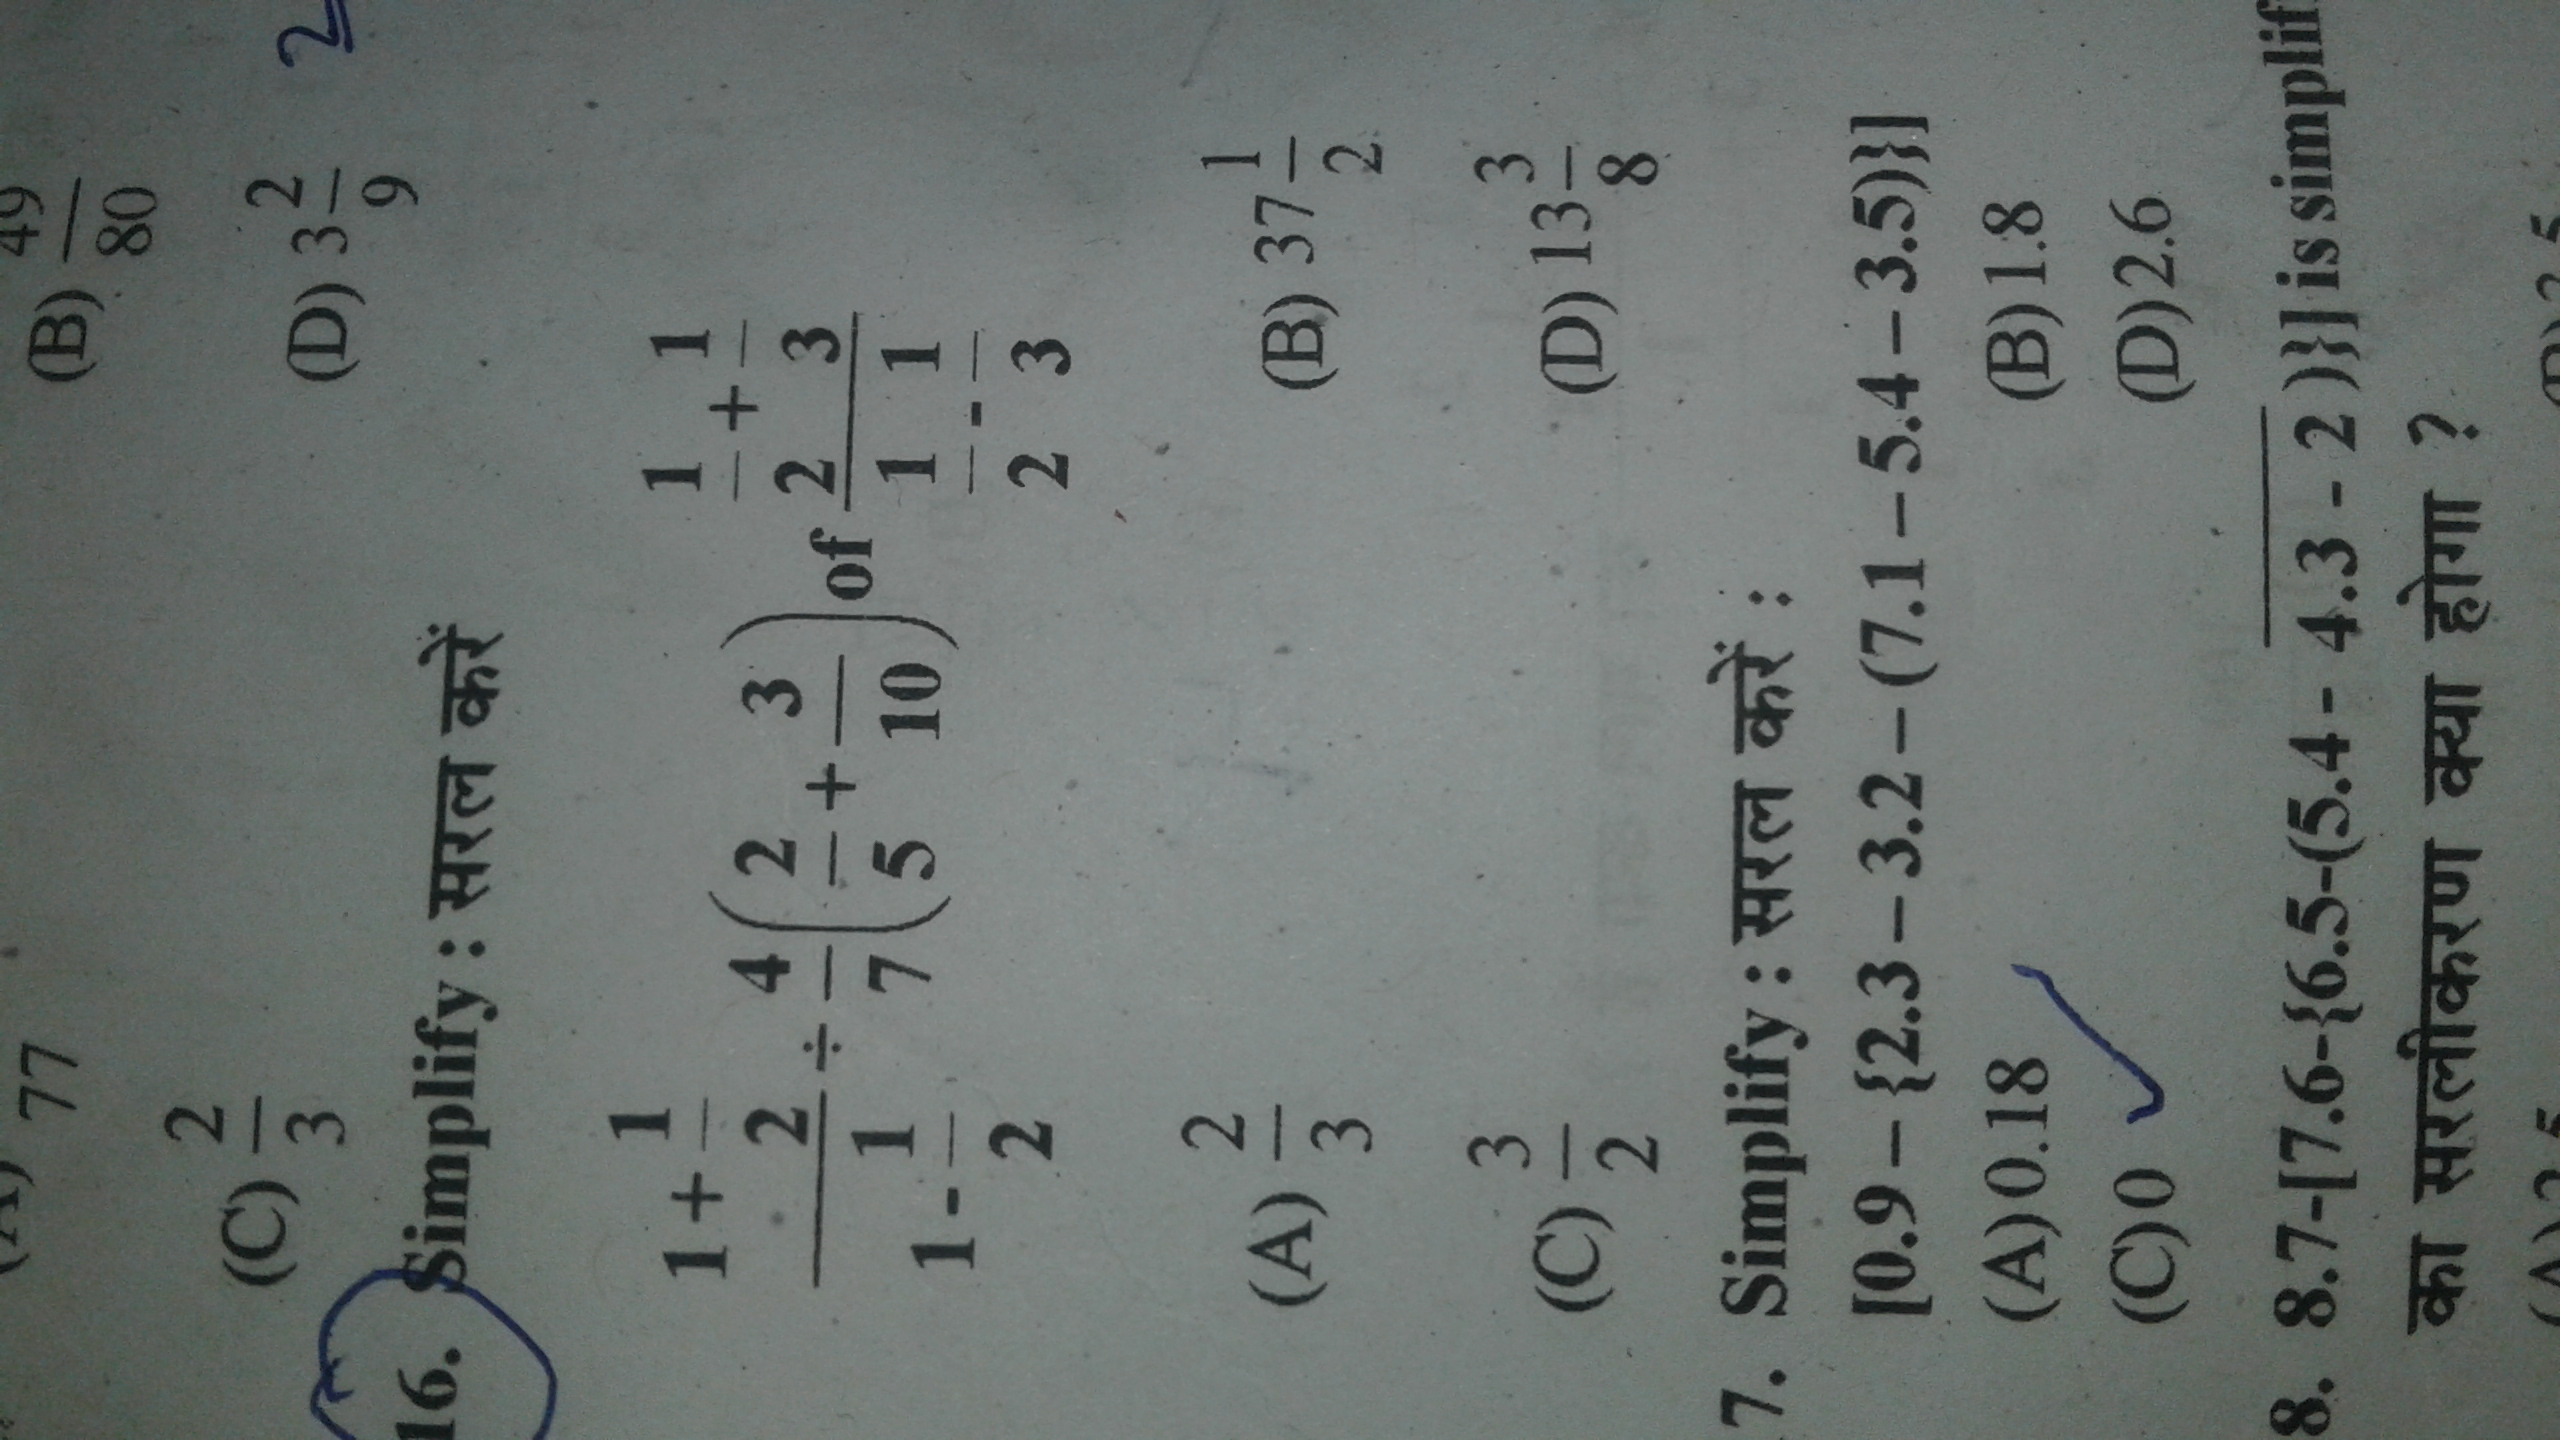 77 (B) 49/80
(C) 2/3 (D) 3 2/9
2
16. Simplify : सरल करें
(1 + 1/2)/(1 - 1/2) ÷ 4/7 (2/5 + 3/10) of (1/2 + 1/3)/(1/2 - 1/3)
(A) 2/3 (B) 37 1/2
(C) 3/2 (D) 13 3/8
7. Simplify : सरल करें :
[0.9 – {2.3 – 3.2 – (7.1 – 5.4 – 3.5)}]
(A) 0.18 (B) 1.8
(C) 0 (D) 2.6
8. 8.7-[7.6-{6.5-(5.4 - 4.3 - 2 )}] is simplif
का सरलीकरण क्या होगा ?